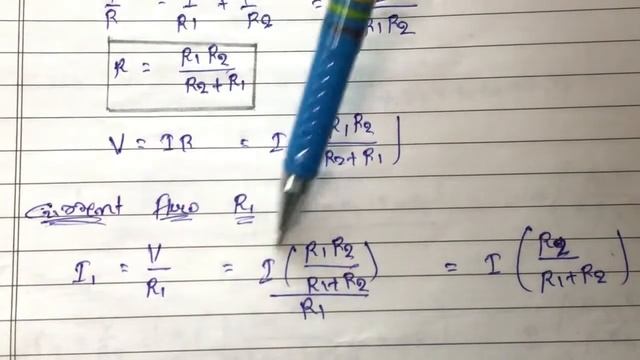 1/R = 1/R1 + 1/R2 = /R1R2
R = R1R2/R2+R1
V = IR = I R1R2/R2+R1)
Current thro R1
I1 = V/R1 = I(R1R2/R1+R2)/R1 = I(R2/R1+R2)